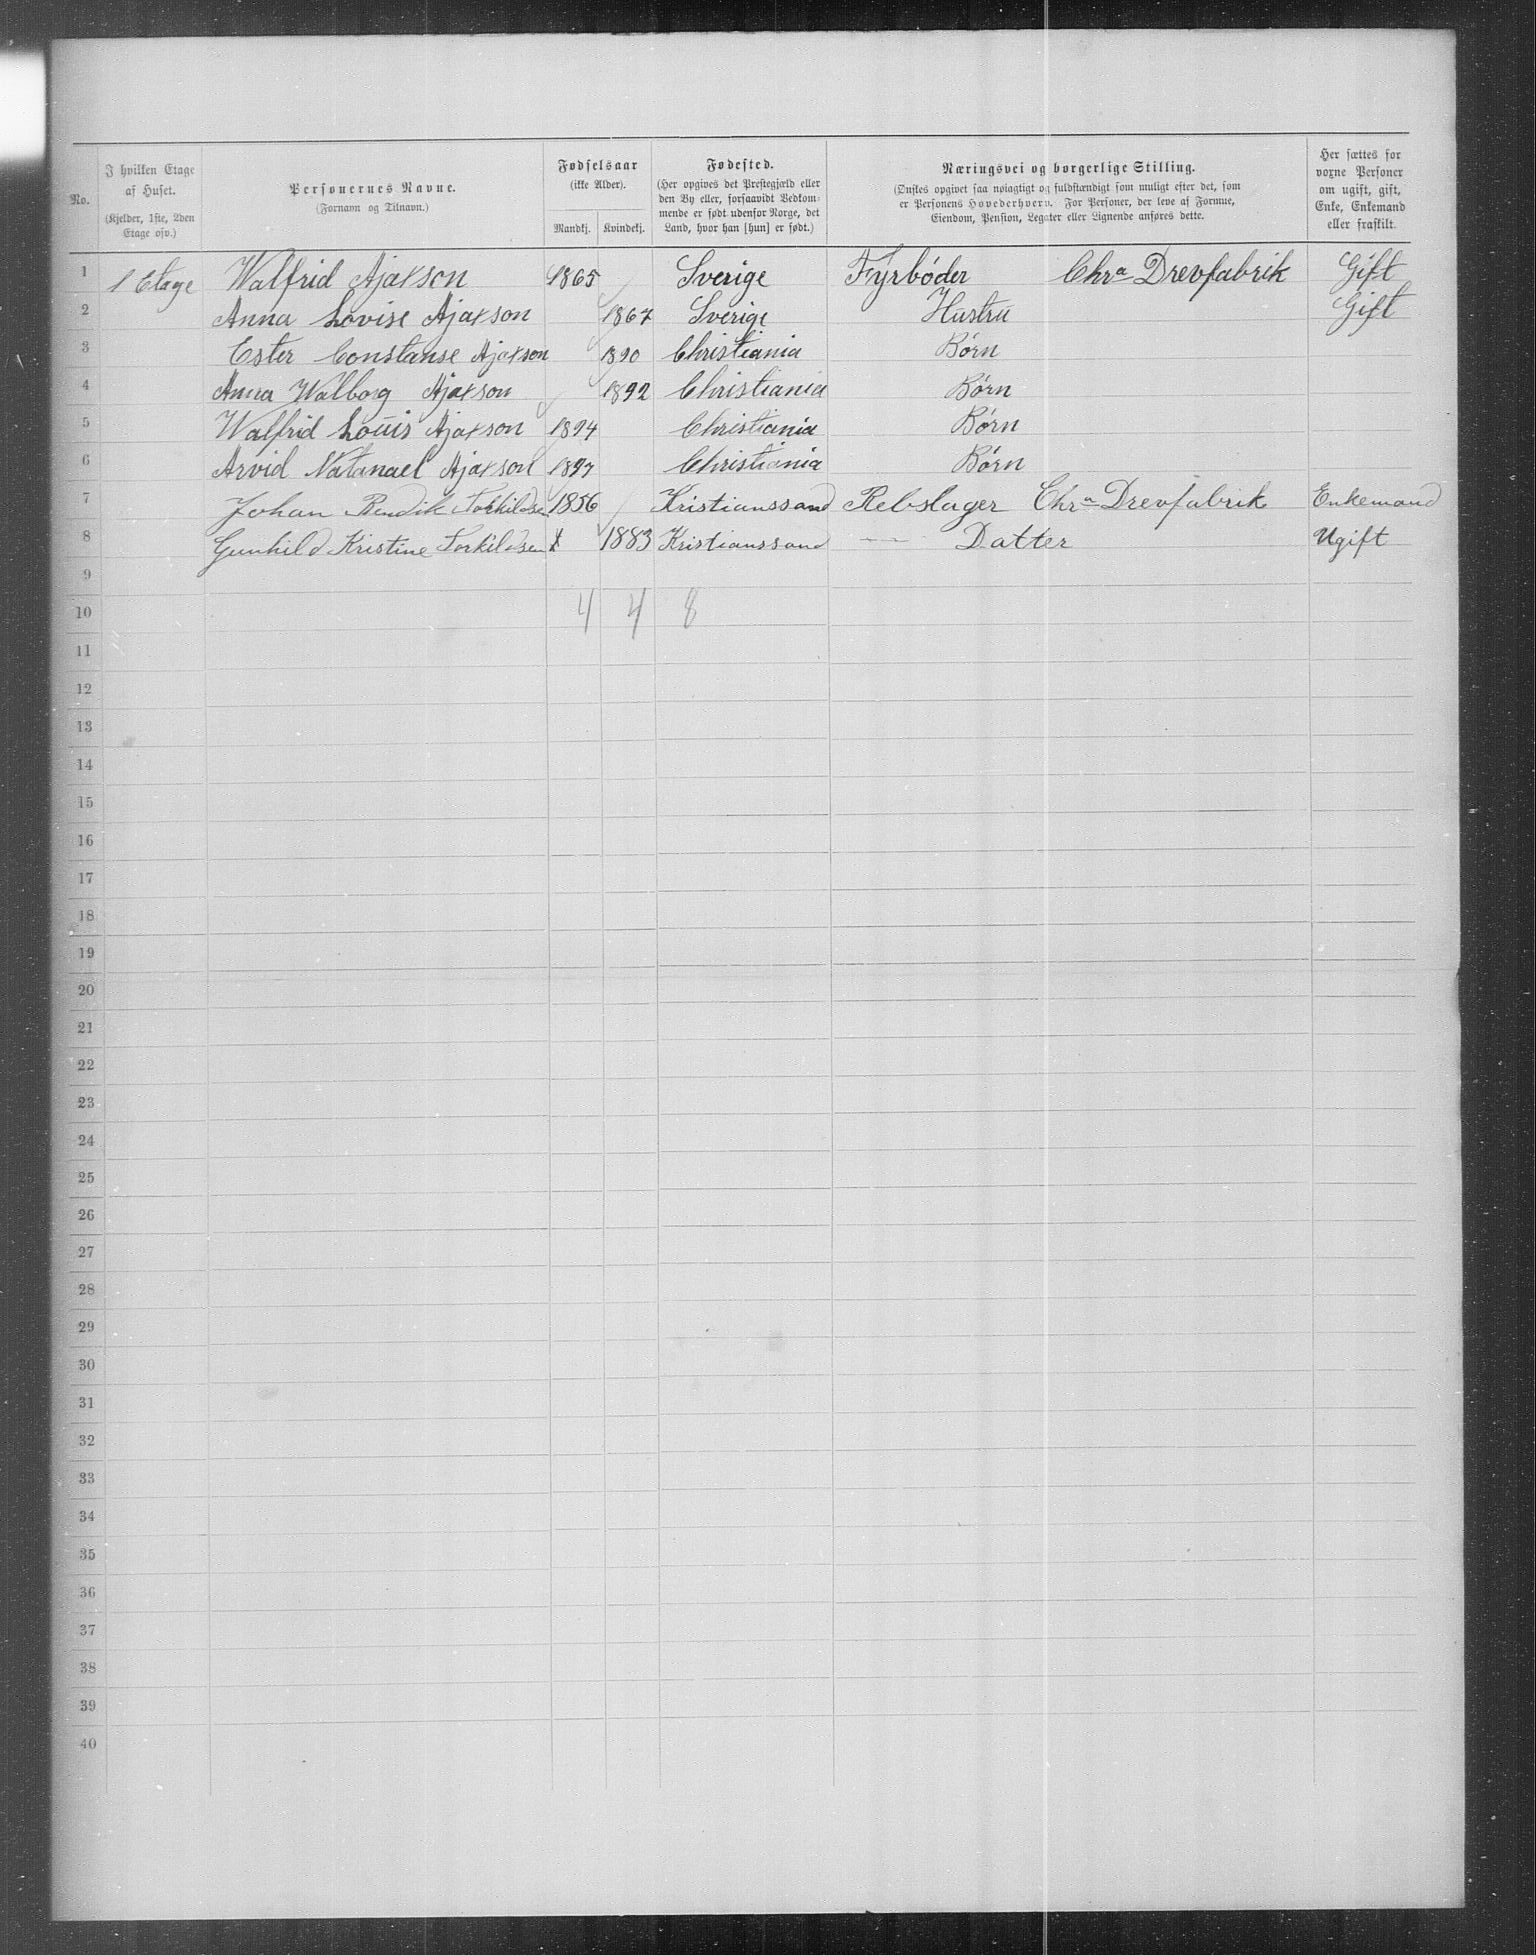 No. | I hvilken Etage af Huset. (Kjelder, 1ste, 2den Etage osv.) | Personernes Navne. (Fornavn og Tilnavn.) | Fødselsaar (ikke Alder). Mandkj. | Kvindekj. | Fødested. (Her opgives det Prestegjæld eller den By eller, forsaavidt Vedkommende er født udenfor Norge, det Land, hvor han [hun] er født.) | Næringsvei og borgerlige Stilling. (Ønskes opgivet saa nøiagtigt og fuldstændigt som muligt efter det, som er Personens Hovederhverv. For Personer, der leve af Formue, Eiendom, Pension, Legater eller Lignende anføres dette.) | Her sættes for voxne Personer om ugift, gift, Enke, Enkemand eller fraskilt.
1 | 1 Etage | Walfrid Ajaxson | 1865 | | Sverige | Fyrbóder Chra Drevfabrik | Gift
2 | Anna Lovise Ajaxson | | 1867 | Sverige | Hustru | Gift
3 | Ester Constanse Ajaxson | | 1890 | Christiania | Børn
4 | Anna Walborg Ajaxson | | 1892 | Christiania | Børn
5 | Walfrid Louis Ajaxson | 1894 | | Christiania | Børn
6 | Arvid Natanael Ajaxson | 1897 | | Christiania | Børn
7 | Johan Bendik Torkildsen | 1856 | | Kristianssand | Rebslager Chra Drevfabrik | Enkemand
8 | Gunhild Kristine Torkildsen | x | 1883 | Kristianssand | — Datter | Ugift
9
10 | 4 | 4 | 8
11
12
13
14
15
16
17
18
19
20
21
22
23
24
25
26
27
28
29
30
31
32
33
34
35
36
37
38
39
40